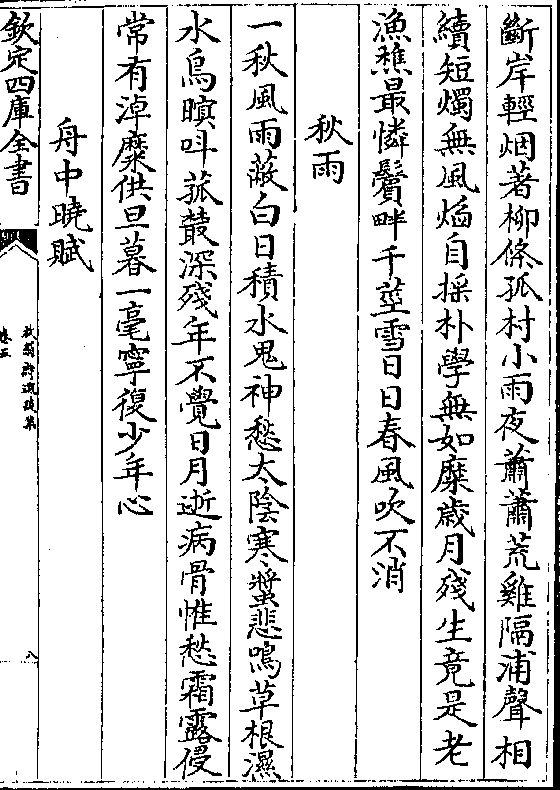 斷岸輕烟著柳條孤村小雨夜蕭蕭荒雞隔浦聲相
續短燭無風燄自揺朴學無如糜歲月殘生竟是老
漁樵最憐鬢畔千莖雪日日春風吹不消
秋雨
一秋風雨蔽白日積水鬼神愁太陰寒螿悲鳴草根濕
水鳥暝呌菰叢深殘年不覺日月逝病骨惟愁霜露侵
常有淖糜供旦暮一毫寧復少年心
舟中曉賦
欽定四庫全書
放翁詩選後集
卷五
八